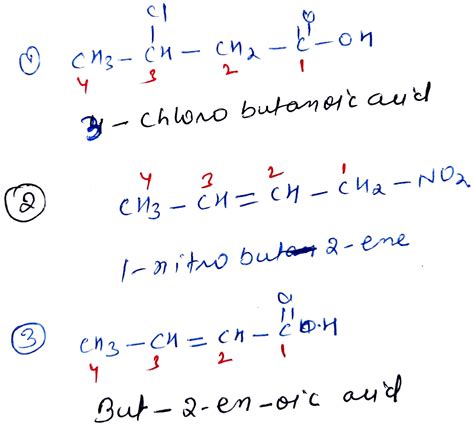 Cl
O
① CH3 - CH - CH2 - C - OH
4 3 2 1
3 - chloro butanoic acid
② 4 3 2 1
CH3 - CH = CH - CH2 - NO2
1-nitro but 2-ene
O
③ CH3 - CH = CH - C O.H
4 3 2 1
But - 2-en-oic acid